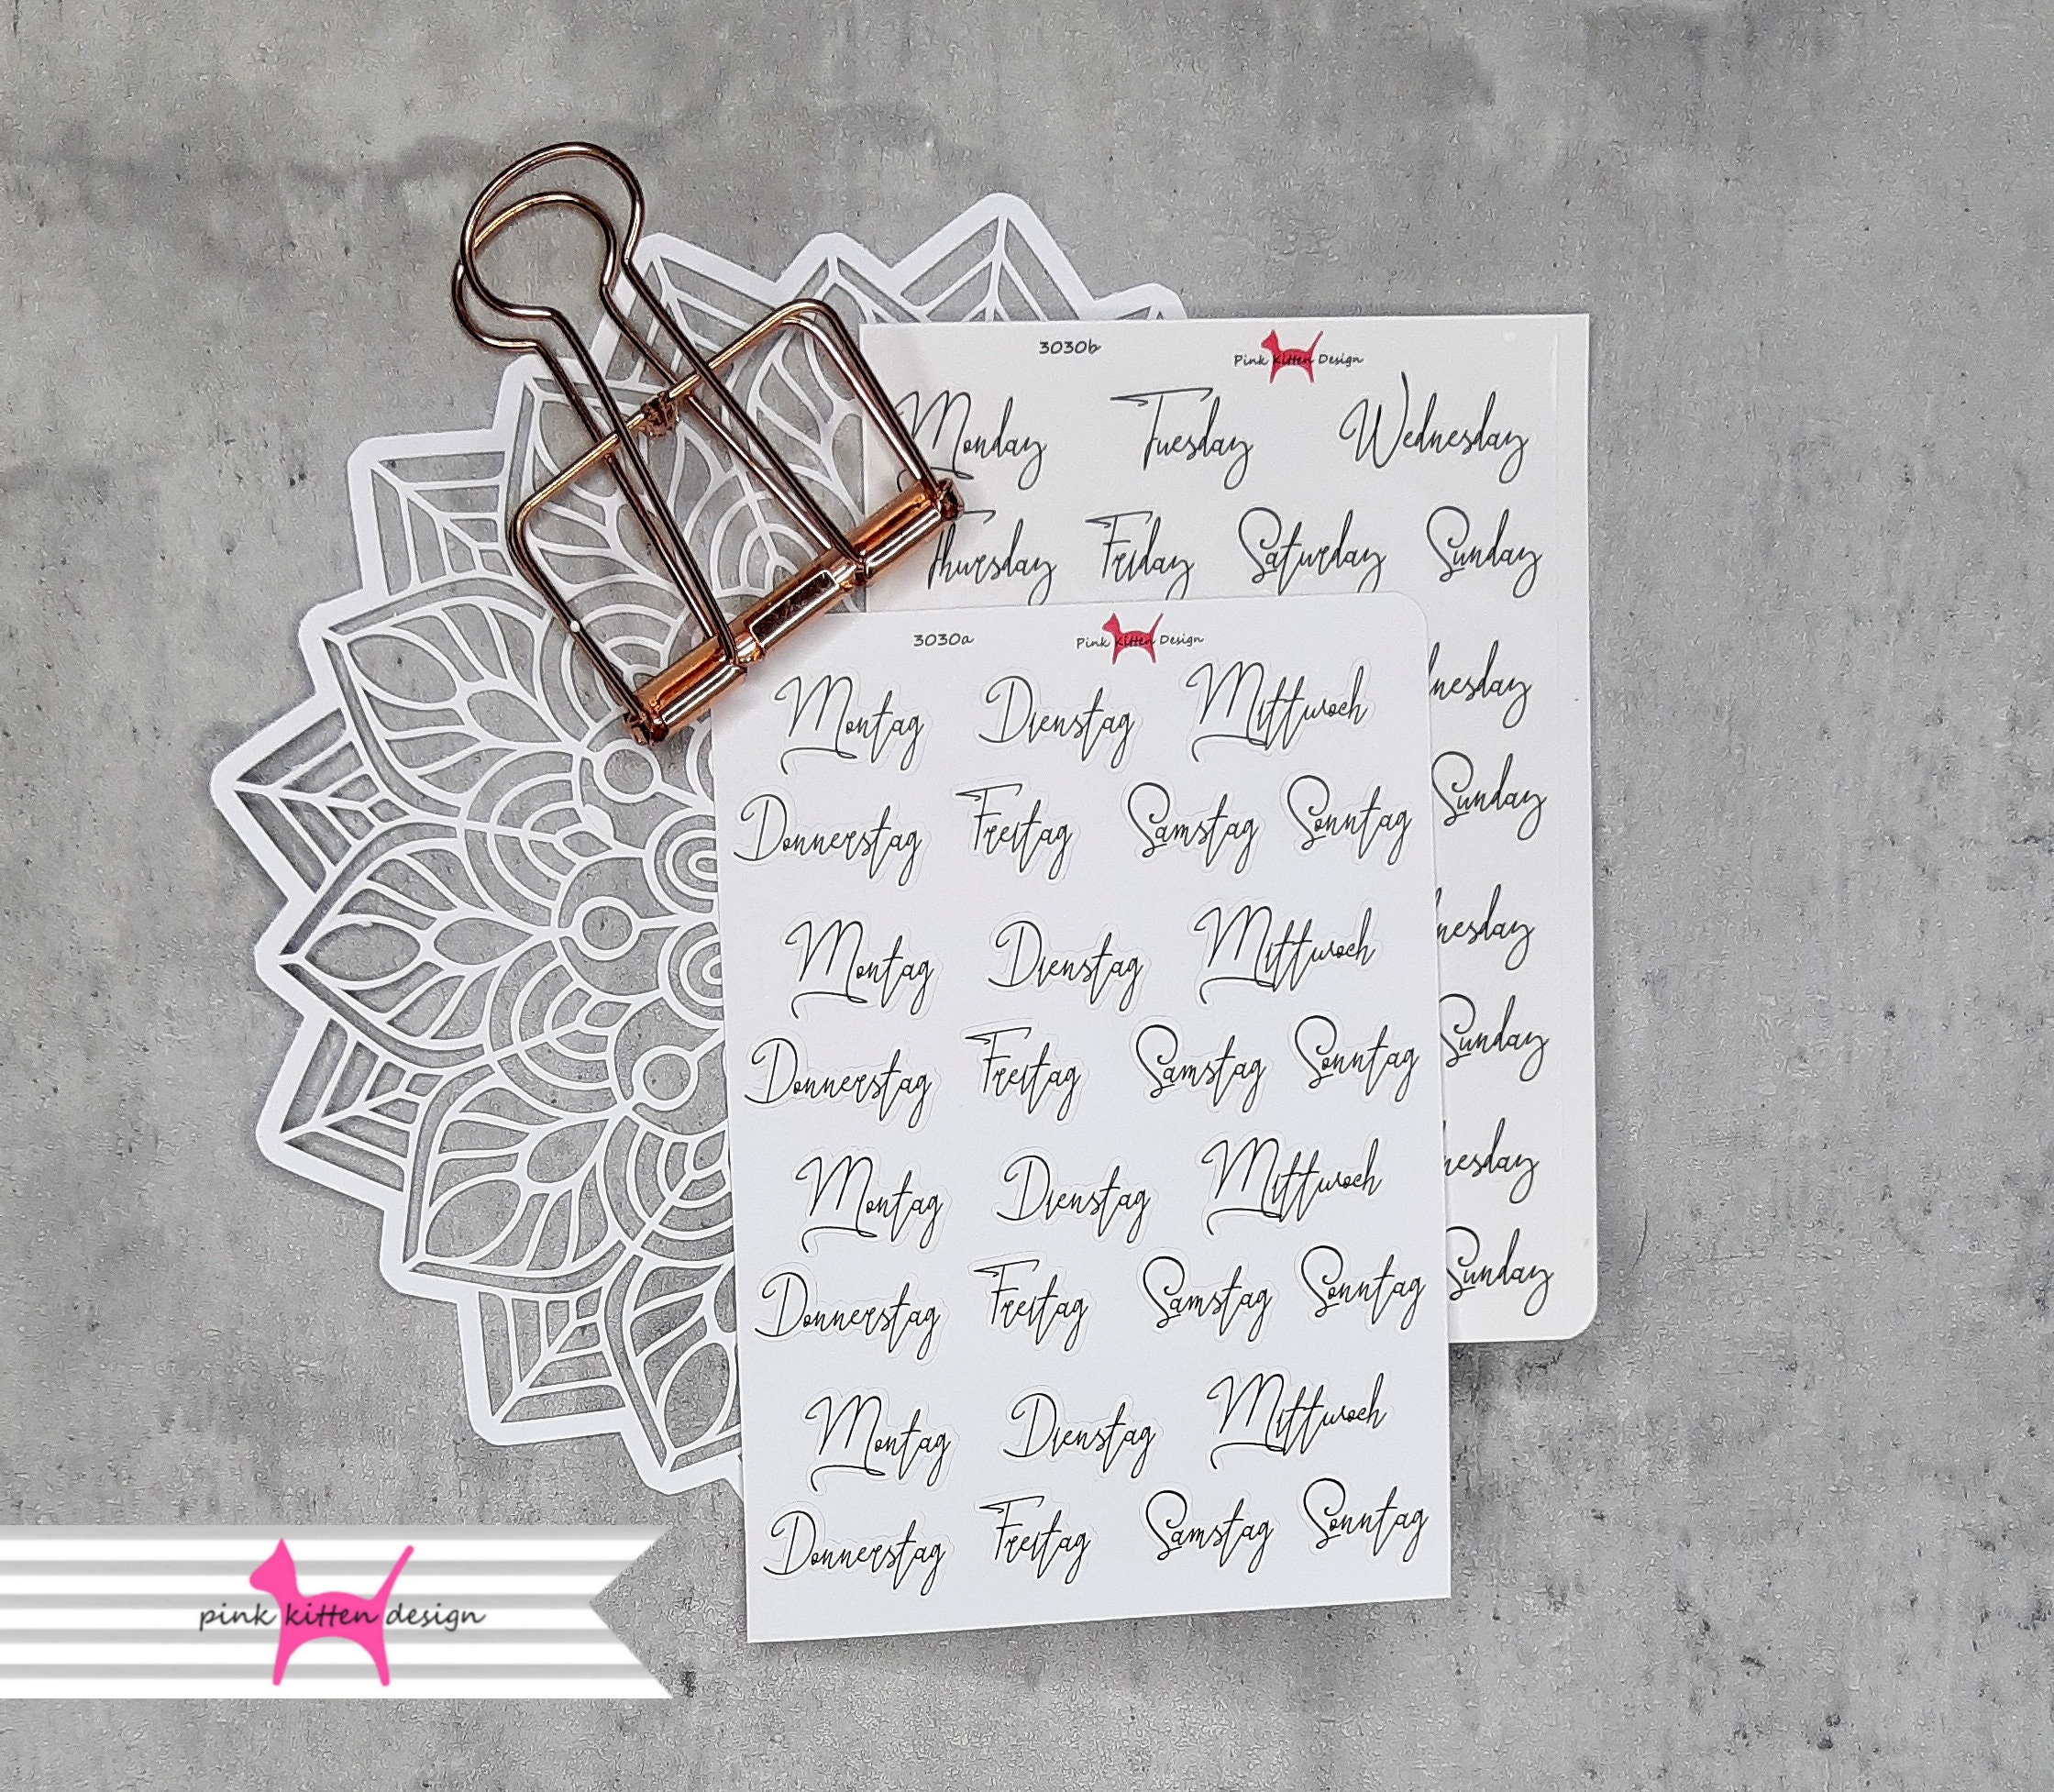 3030b
Pink Kitten Design
Monday Tuesday Wednesday
Thursday Friday Saturday Sunday
nesday
Sunday
nesday
Sunday
nesday
Sunday
3030a
Pink Kitten Design
Montag Dienstag Mittwoch
Donnerstag Freitag Samstag Sonntag
Montag Dienstag Mittwoch
Donnerstag Freitag Samstag Sonntag
Montag Dienstag Mittwoch
Donnerstag Freitag Samstag Sonntag
Montag Dienstag Mittwoch
Donnerstag Freitag Samstag Sonntag
pink kitten design